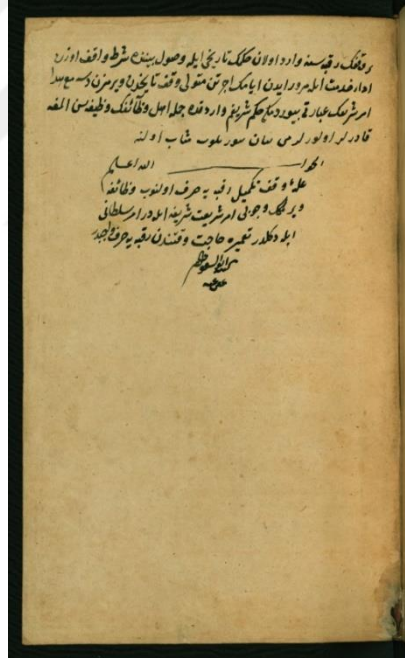 وقفك رقبه سنه وارد اولان حكمك تاريخى ايله وصول بيننده شرط واقف اوزره
اداء خدمت ايله مرور ايدن ايامك اجرتن متولى وقف تا يخدين ويرمزن ديسه مع هذا
امر شريفك عبارتى بيوردمكه حكم شريفم واردقده جمله اهل وظائفك وظيفه سن المغه
قادر لر اولور لر مى بيان بيوريلوب مثاب اوله
الجواب الله اعلم
غله وقف تكميل رقبه يه صرف اولنوب وظائفه
ويرلمك وجوبى امر شريعت شريفه ايله در امر سلطانى
ايله دكلدر تعميره حاجت وقتندن رقبه يه صرف واجبدر
كتبه ابو السعود
عفى عنه